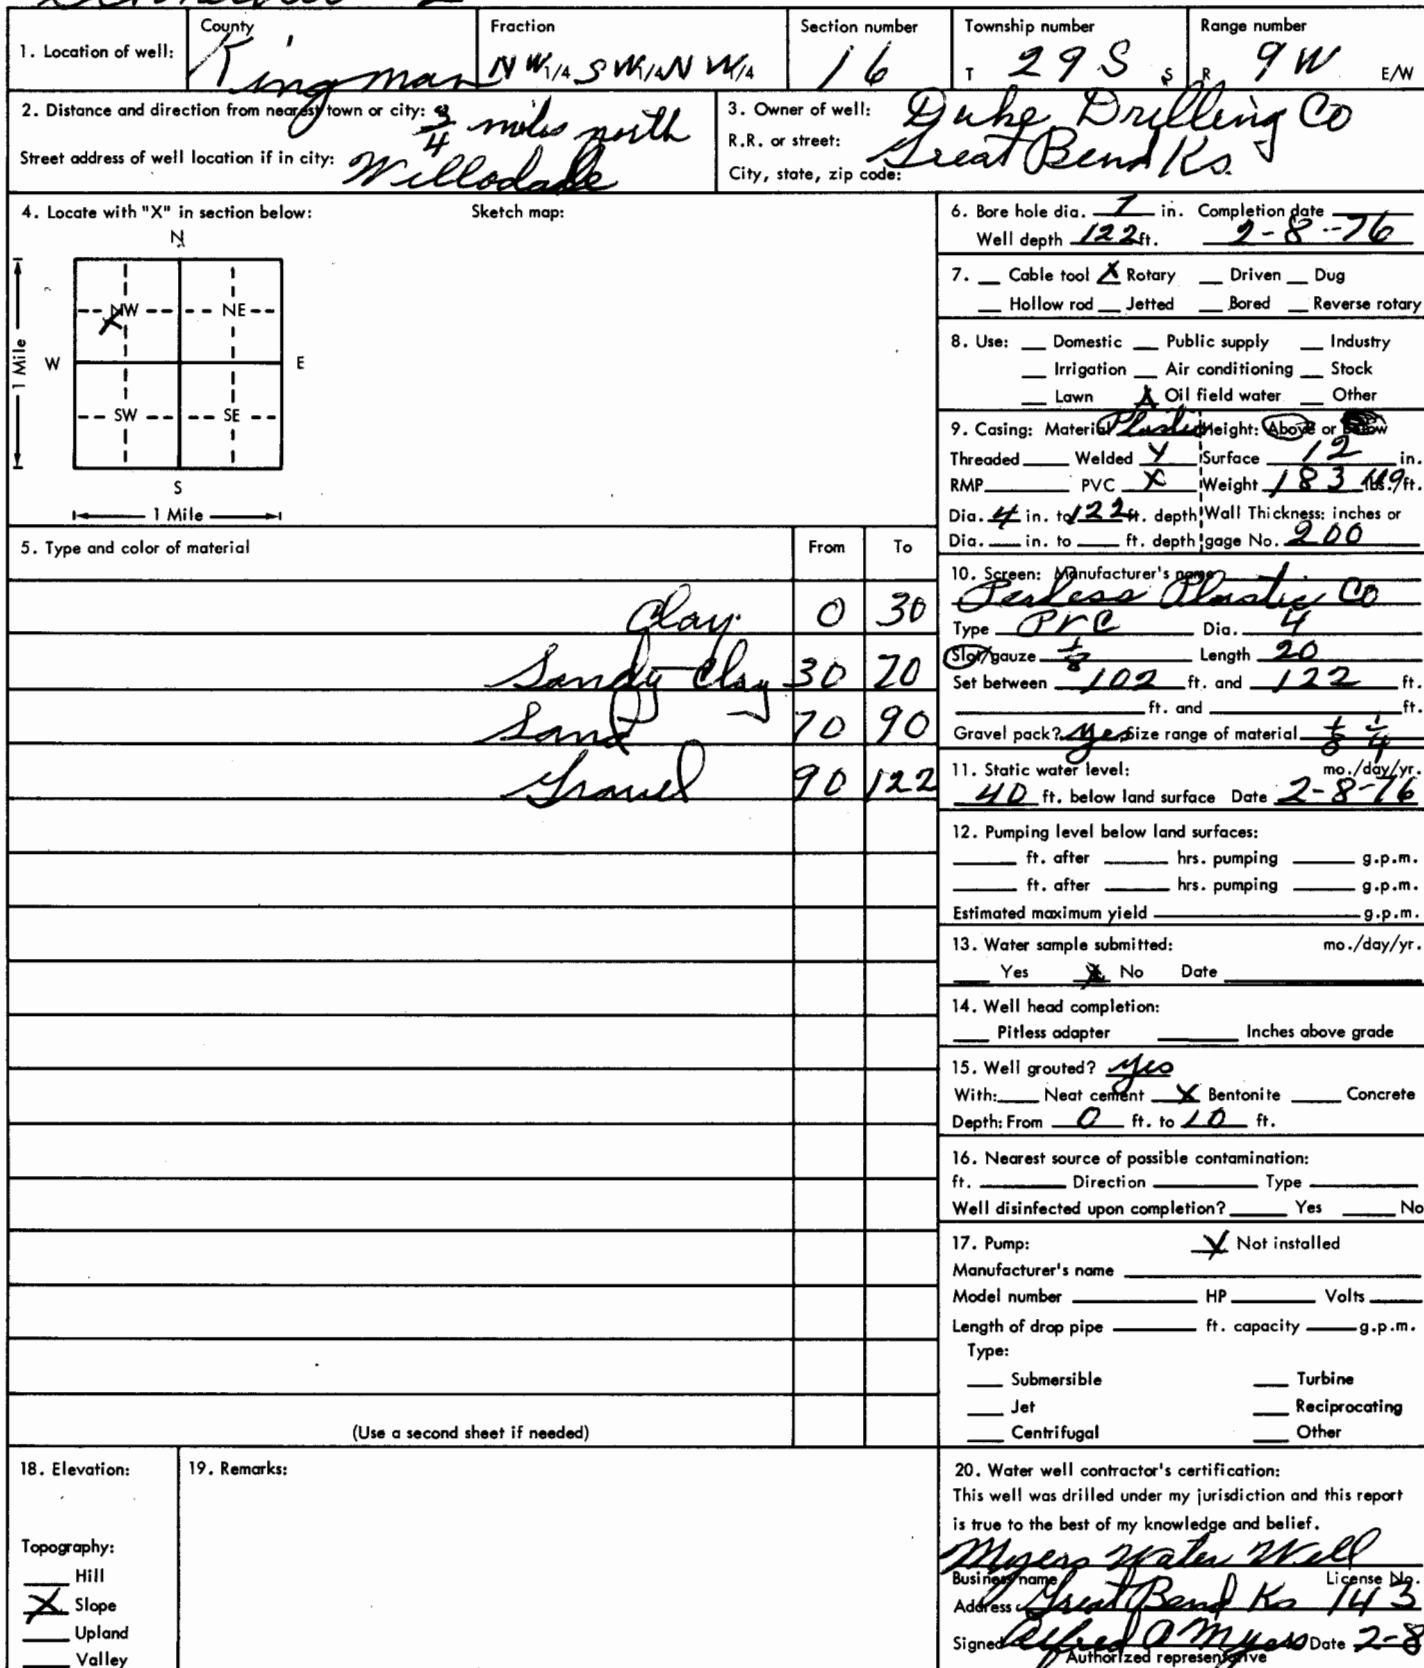 County Fraction Section number Township number Range number
1. Location of well: Kingman NW 1/4 SW 1/4 NW 1/4 16 T 29S S R 9W E/W
2. Distance and direction from nearest town or city: 3/4 miles north
Street address of well location if in city: Willodale
3. Owner of well: Duke Drilling Co
R.R. or street:
City, state, zip code: Great Bend Ks.
4. Locate with "X" in section below: Sketch map:
N
NW NE
W E
X
SW SE
S
1 Mile
1 Mile
5. Type and color of material From To
Clay 0 30
Sandy Clay 30 70
Sand 70 90
Gravel 90 122
(Use a second sheet if needed)
6. Bore hole dia. 7 in. Completion date
Well depth 122 ft. 2-8-76
7. Cable tool X Rotary Driven Dug
Hollow rod Jetted Bored Reverse rotary
8. Use: Domestic Public supply Industry
Irrigation Air conditioning Stock
Lawn X Oil field water Other
9. Casing: Material Plastic Height: Above or Below
Threaded Welded X Surface 12 in.
RMP PVC X Weight 183 lbs./ft.
Dia. 4 in. to 122 ft. depth Wall Thickness: inches or
Dia. in. to ft. depth gage No. 200
10. Screen: Manufacturer's name
Perless Plastic Co
Type PVC Dia. 4
Slot/gauze 1/8 Length 20
Set between 102 ft. and 122 ft.
ft. and ft.
Gravel pack? Yes Size range of material 1/8 1/4
11. Static water level: mo./day/yr.
40 ft. below land surface Date 2-8-76
12. Pumping level below land surfaces:
ft. after hrs. pumping g.p.m.
ft. after hrs. pumping g.p.m.
Estimated maximum yield g.p.m.
13. Water sample submitted: mo./day/yr.
Yes X No Date
14. Well head completion:
Pitless adapter Inches above grade
15. Well grouted? yes
With: Neat cement X Bentonite Concrete
Depth: From 0 ft. to 10 ft.
16. Nearest source of possible contamination:
ft. Direction Type
Well disinfected upon completion? Yes No
17. Pump: X Not installed
Manufacturer's name
Model number HP Volts
Length of drop pipe ft. capacity g.p.m.
Type:
Submersible Turbine
Jet Reciprocating
Centrifugal Other
18. Elevation:
Topography:
Hill
X Slope
Upland
Valley
19. Remarks:
20. Water well contractor's certification:
This well was drilled under my jurisdiction and this report
is true to the best of my knowledge and belief.
Myers Water Well
Business name License No.
Address Great Bend Ks 143
Signed Alfred A Myers Date 2-8
Authorized representative